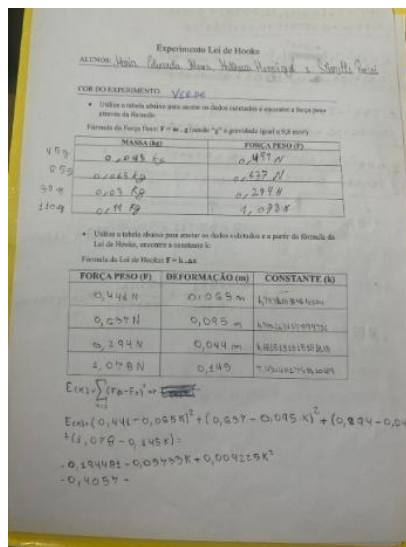 Experimento Lei de Hooke
ALUNOS: Maria Eduarda
COR DO EXPERIMENTO VERDE
• Utilize a tabela abaixo para anotar os dados coletados e encontre a força peso através da fórmula:
Fórmula da Força Peso: F = m . g (sendo "g" a gravidade igual a 9,8 m/s²)
MASSA (kg) FORÇA PESO (F)
45g 0,045 kg 0,441 N
65g 0,065 kg 0,637 N
30g 0,03 kg 0,294 N
110g 0,11 kg 1,078 N
• Utilize a tabela abaixo para anotar os dados coletados e a partir da fórmula da
Lei de Hooke, encontre a constante k:
Fórmula da Lei de Hooke: F = k . Δx
FORÇA PESO (F) DEFORMAÇÃO (m) CONSTANTE (k)
0,441 N 0,065 m
0,637 N 0,095 m
0,294 N 0,044 m
1,078 N 0,145
E(k) = Σ
E(k) = (0,441 - 0,065K)² + (0,637 - 0,095 K)² + (0,294 - 0,04
+ (1,078 - 0,145K) =
0,194481 - 0,05733K + 0,004225K²
- 0,4057 -